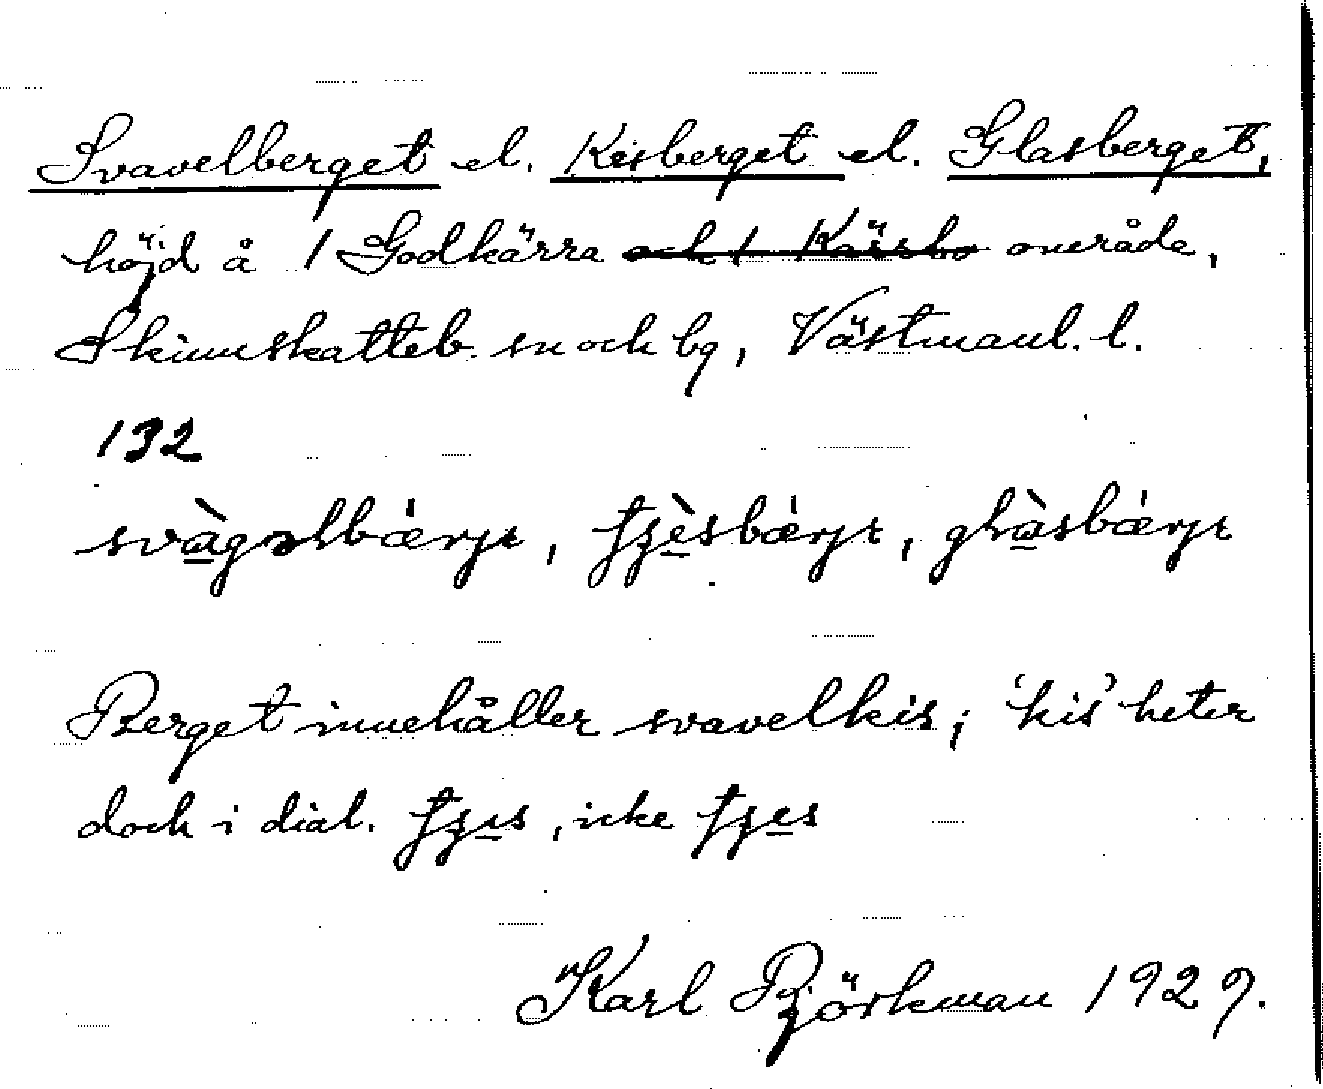 Svavelberget el. Kisberget el. Glasberget,
höjd å 1 Godkärra och 1 Kärrbo område,
Skinnskatteb. sn och bg, Västmanl. l.
132
Berget innehåller svavelkis; 'kis' heter
dock i dial. , icke
Karl Björkman 1929.